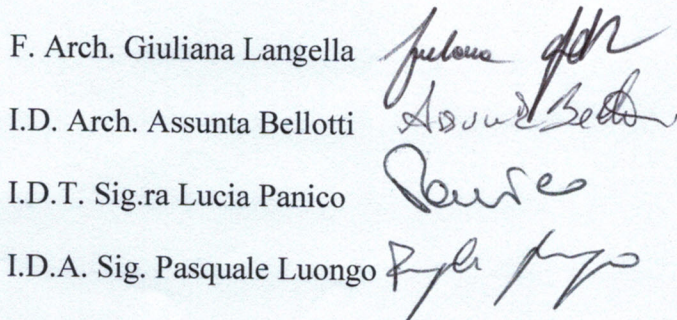 F. Arch. Giuliana Langella
I.D. Arch. Assunta Bellotti Assunta Bellotti
I.D.T. Sig.ra Lucia Panico Panico
I.D.A. Sig. Pasquale Luongo